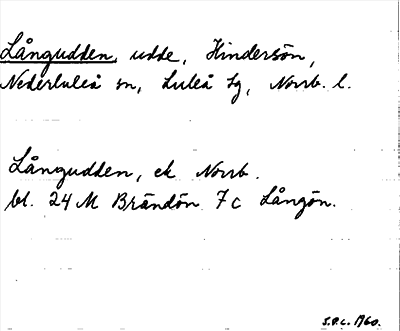 Långudden, udde, Hindersön,
Nederluleå sn, Luleå tg, Norrb. l.
Långudden, ek Norrb.
bl. 24 M Brändön 7 c Långön.
S.P.L. 1960.